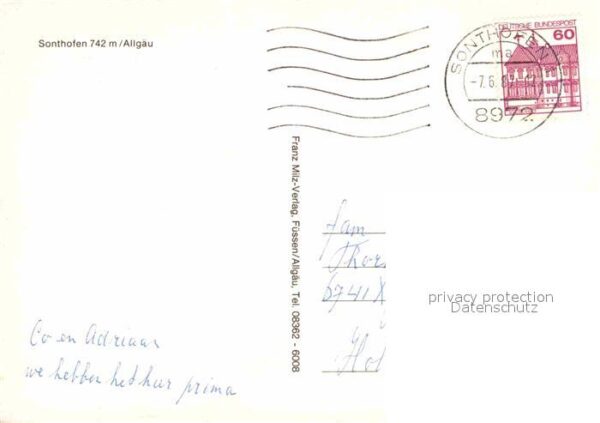 Sonthofen 742 m/Allgäu
SONTHOFEN
ma
-7.6.8
8972
DEUTSCHE BUNDESPOST
60
Franz Milz-Verlag, Füssen/Allgäu, Tel. 08362 - 6008
fam
Thor
6741
Hol
privacy protection
Datenschutz
Co en Adriaan
we hebben het hier prima